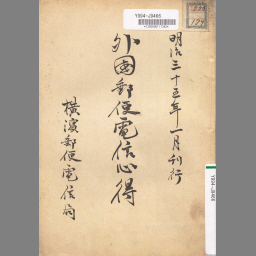 Y994-J9466
明治三十五年一月刊行
外國郵便電信心得
横濱郵便電信局
Y994-J9466